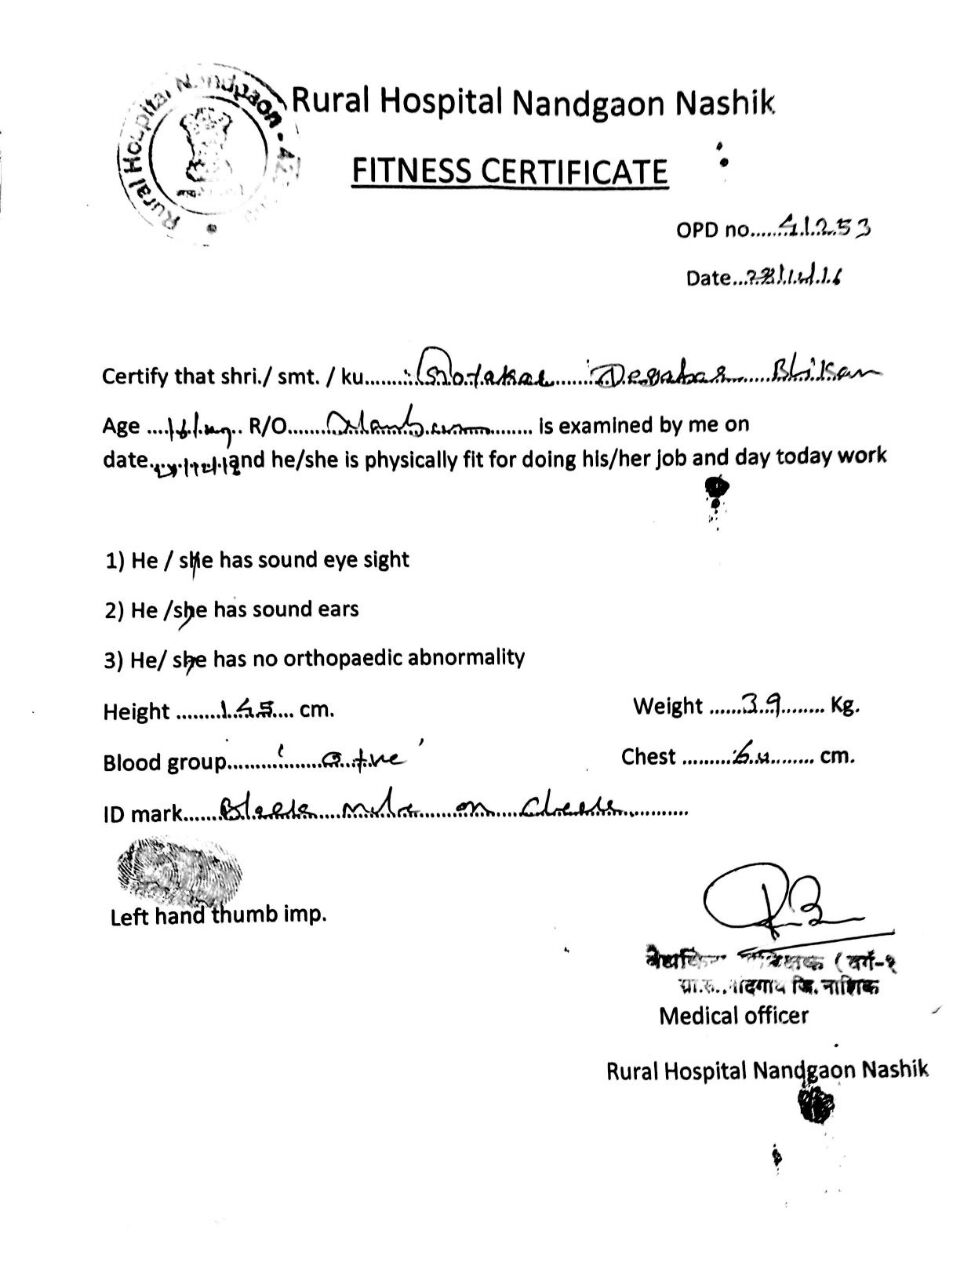 Rural Hospital Nandgaon
Rural Hospital Nandgaon Nashik
FITNESS CERTIFICATE
OPD no.....41253
Date...
Certify that shri./ smt. / ku........ Bhikan
Age .... R/O.......... is examined by me on
date..... and he/she is physically fit for doing his/her job and day today work
1) He / she has sound eye sight
2) He /she has sound ears
3) He/ she has no orthopaedic abnormality
Height ........145.... cm.
Weight ......39........ Kg.
Blood group............'o +ve'
Chest .........64......... cm.
ID mark......Black mole on cheek............
Left hand thumb imp.
( वर्ग-१
ग्रा.रु. नांदगाव जि. नाशिक
Medical officer
Rural Hospital Nandgaon Nashik